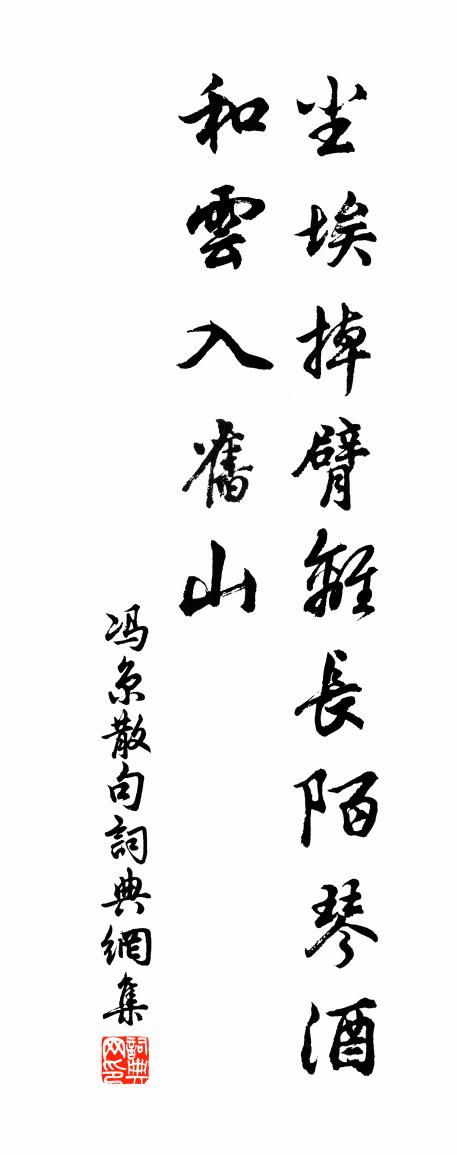 尘埃掉臂離長陌琴酒
和雲入舊山
冯京散句詞典網集
詞典网印